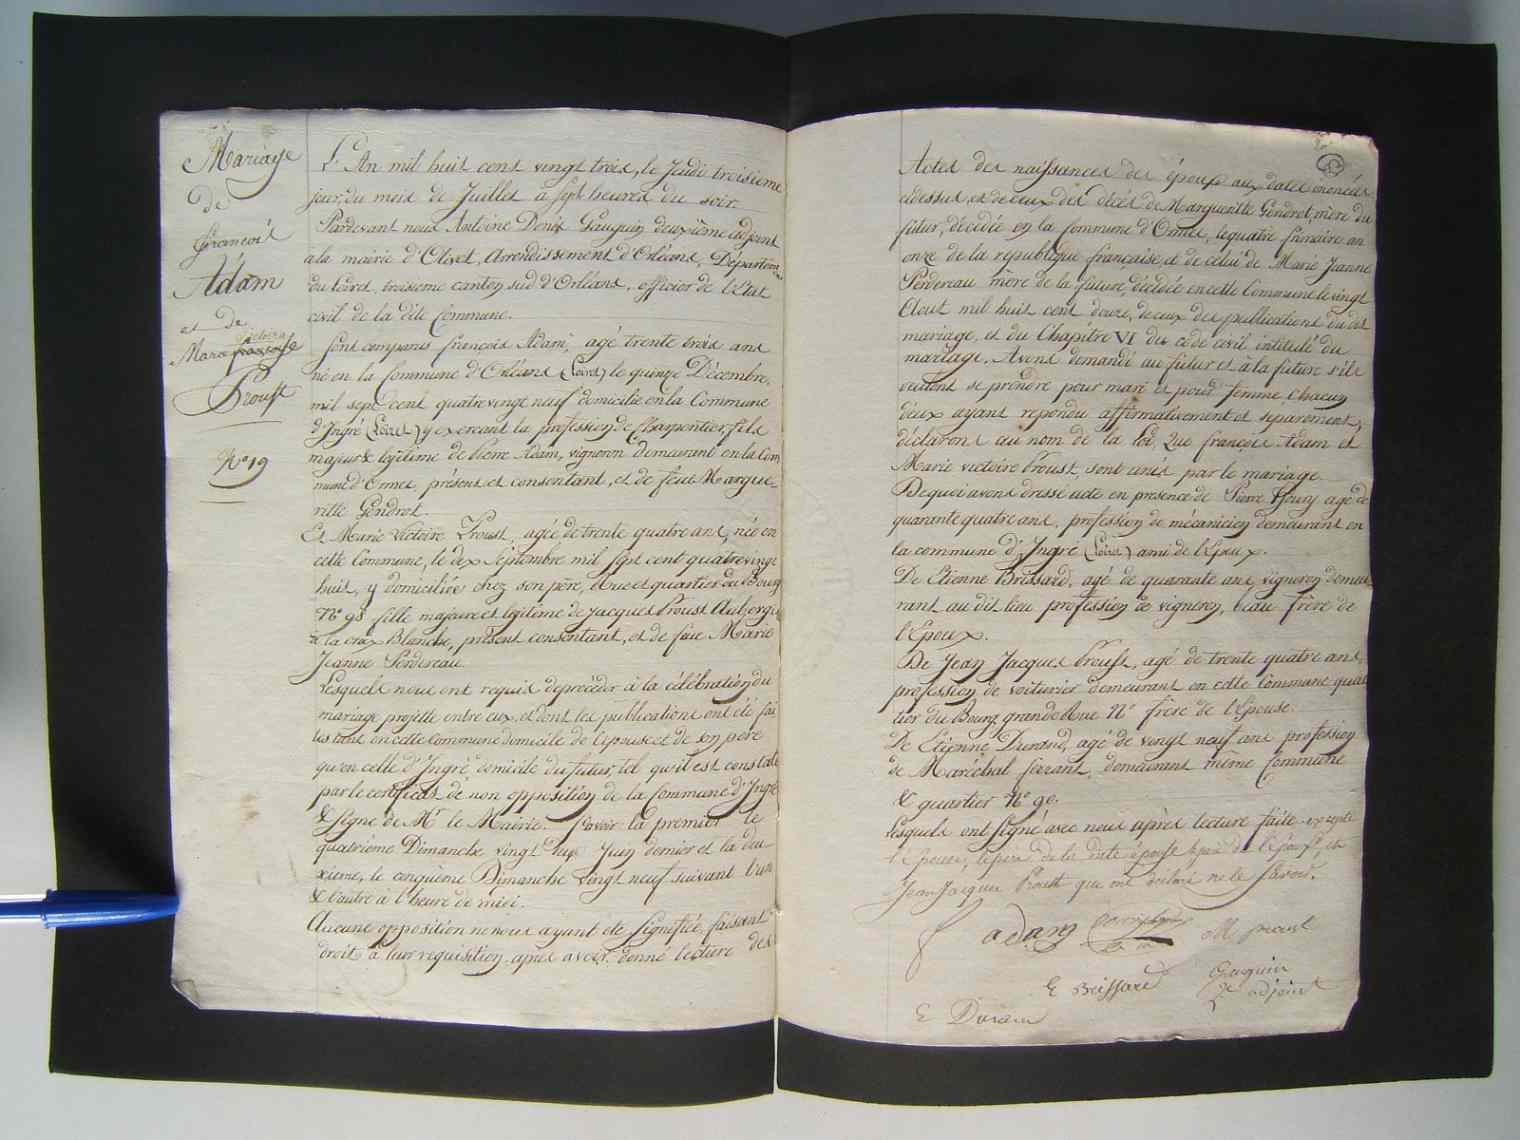 Mariage
de
François
Adam
et de
Victoire
Marie
Proust
N° 19
L'An mil huit cent vingt trois, le Jeudi troisieme
jour du mois de Juillet à sept heures du soir
Pardevant nous Antoine Denis Gauguin deuxième adjoint
à la mairie d'Olivet, Arrondissement d'Orléans, Départem
du Loiret, troisieme canton sud d'Orléans, officier de l'état
civil de la dite Commune.
Sont comparus françois Adam, agé trente trois ans
né en la Commune d'Orléans (Loiret) le quinze Décembre
mil sept cent quatre vingt neuf domicilié en la Commune
d'Ingré (Loiret) y exercant la profession de Charpentier, fils
majeur & légitime de Pierre Adam, vigneron demeurant en la Com
mune d'Ormes, présent et consentant, et de feue Margue-
ritte Gendrot.
Et Marie Victoire Proust, agée de trente quatre ans, née en
cette Commune, le dix Septembre mil sept cent quatre vingt
huit, y domiciliée chez son père, Rue et quartier du Bourg
N° 98 fille majeure et légitime de Jacques Proust Aubergis
à la croix Blanche, présent consentant, et de feue Marie
Jeanne Perdereau.
Lesquels nous ont requis de procéder à la célébration du
mariage projetté entre eux, et dont les publications ont été fai
tes tant en cette Commune domicile de l'épouse et de son père
qu'en celle d'Ingré domicile du futur, tel qu'il est constaté
par le certificat de non opposition de la Commune d'Ingré
& signé de Mr le Mairie. Savoir la premier le
quatrième Dimanche vingt Juin dernier et la deu-
xième, le cinquième Dimanche vingt neuf suivant l'un
& l'autre à l'heure de midi.
Aucune opposition ne nous ayant été signifiée, faisant
droit à leur requisition, après avoir donné lecture des
Actes des naissances des époux aux dates énoncées
cidessus, et de ceux des décès de Margueritte Gendrot, mère du
futur, décédée en la Commune d'Ormes, le quatre frimaire an
onze de la république française, et de celui de Marie Jeanne
Perdereau mère de la future, décédée en cette Commune le vingt
Aout mil huit cent douze, de ceux des publications du dit
mariage, et du Chapitre VI du code civil intitulé du
mariage. Avons demandé au futur et à la future s'ils
veulent se prendre pour mari et pour femme Chacun
d'eux ayant repondu affirmativement et separement,
déclarons au nom de la loi, que françois Adam et
Marie victoire Proust, sont unis par le mariage.
De quoi avons dressé acte en présence de Pierre agé de
quarante quatre ans, profession de mécanicien demeurant en
la commune d'Ingré (Loiret) ami de l'Epoux.
De Etienne Brissard, agé de quarante ans, vigneron demeu-
rant au dit lieu profession de vigneron, beau frère de
l'Epoux.
De Jean Jacques Proust, agé de trente quatre ans,
profession de voiturier demeurant en cette Commune quar
tier du Bourg grande Rue N° frère de l'Epouse
De Etienne Durand, agé de vingt neuf ans profession
de Maréchal ferrant, demeurant même Commune
& quartier N° 90.
Lesquels ont signé avec nous après lecture faite excepté
l'épouse, le père de la dite épouse le père de l'époux, et
Jean Jacques Proust qui ont déclaré ne le savoir.
adam
M proust
E Brissard
Gauguin
2e adjoint
E Durand